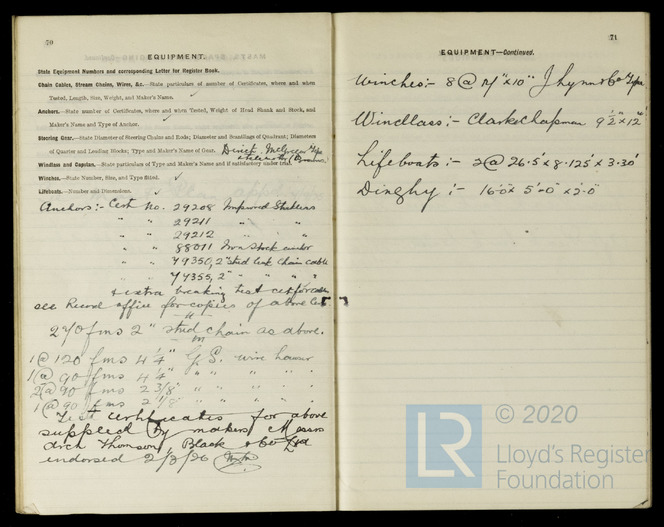 70
EQUIPMENT.
State Equipment Numbers and corresponding Letter for Register Book.
Chain Cables, Stream Chains, Wires, &c.—State particulars of number of Certificates, where and when
Tested, Length, Size, Weight, and Maker's Name.
Anchors.—State number of Certificates, where and when Tested, Weight of Head Shank and Stock, and
Maker's Name and Type of Anchor.
Steering Gear.—State Diameter of Steering Chains and Rods; Diameter and Scantlings of Quadrant; Diameters
of Quarter and Leading Blocks; Type and Maker's Name of Gear. Direct
Windlass and Capstan.—State particulars of Type and Maker's Name and if satisfactory under trial.
Winches.—State Number, Size, and Type fitted.
Lifeboats.—Number and Dimensions.
Anchors:- Cert No. 29208 Improved Stockless
" " 29211 " "
" " 29212 " "
" " 88011 Iron Stock anchor
" " 49350, 2" Stud link chain cable
" " 44355, 2" " " " "
& extra breaking test certificates
see Record office for copies of above Cert
270 fms 2" stud chain as above.
1 @ 120 fms 4 1/4" G.S. wire hawser
1 @ 90 fms 4 1/4" " " " "
2 @ 90 fms 2 3/8" " " " "
1 @ 90 fms " " " "
Test certificates for above
supplied by makers Messrs
Arch Thomson, Black & Co Ltd
endorsed 2/3/26
71
EQUIPMENT—Continued.
Winches:- 8 @ 7" x 10" J Lynn & Co Type
Windlass:- Clarke Chapman 9 1/2" x 12"
Lifeboats:- 2 @ 26.5' x 8.125' x 3.30'
Dinghy:- 16.0' x 5'-0" x 2'-0"
© 2020
LR
Lloyd's Register
Foundation